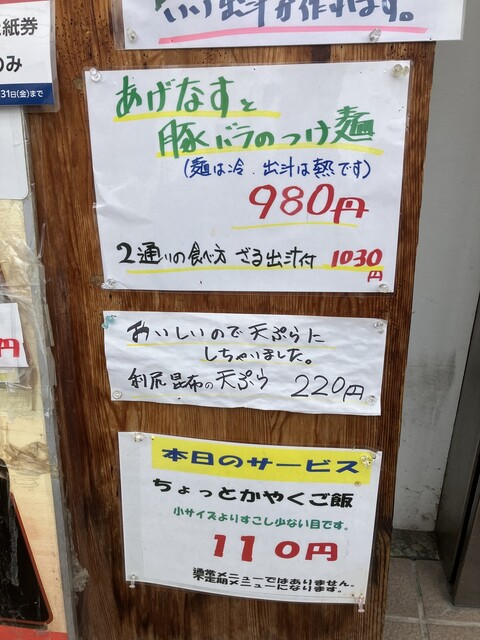 紙券
のみ
31日(金)まで
いい出汁が作れます。
あげなすと
豚バラのつけ麺
(麺は冷．出汁は熱です)
980円
2通りの食べ方 ざる出汁付 1030
円
おいしいので天ぷらに
しちゃいました。
利尻昆布の天ぷら 220円
円
本日のサービス
ちょっとかやくご飯
小サイズよりすこし少ない目です。
110円
通常メニューではありません。
不定期メニューになります。